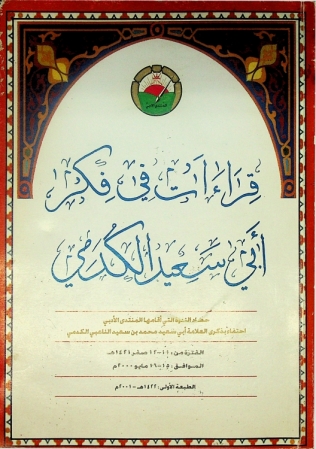 قِرَاءَاتٌ فِي فِكْرِ
أَبِي سَعِيدٍ الكُدَمِيِّ
حصاد الندوة التي أقامها المنتدى الأدبي
احتفاءً بذكرى العلامة أبي سعيد محمد بن سعيد الناعبي الكدمي
الفترة من: ١١-١٢ صفر ١٤٢١هـ
الموافق: ١٥-١٦ مايو ٢٠٠٠م
الطبعة الأولى: ١٤٢٢هـ - ٢٠٠١م